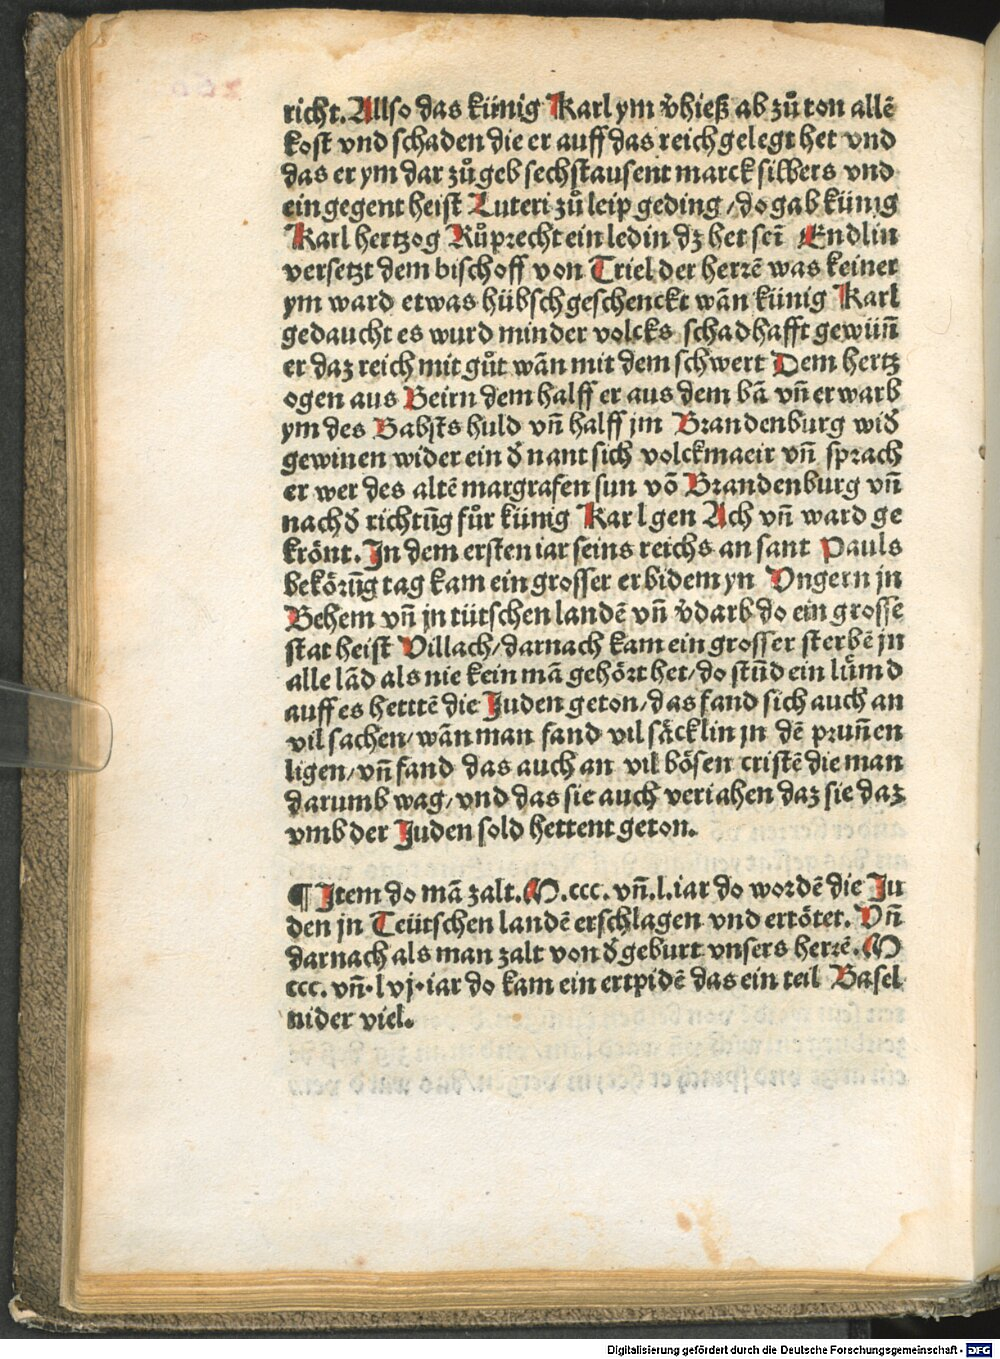 richt. Allso das künig Karl ym v̄hieß ab zů ton allē
kost vnd schaden die er auff das reich gelegt het vnd
das er ym dar zů geb sechstausent marck silbers vnd
ein gegent heist Luteri zů leip geding / do gab künig
Karl hertzog Růprecht ein ledin dz het sei᷈ Endlin
versetzt dem bischoff von Triel der herrē was keiner
ym ward etwas hübsch geschenckt wān künig Karl
gedaucht es wurd minder volcks schadhafft gewün̄
er daz reich mit gůt wān mit dem schwert Dem hertz
ogen aus Beirn dem halff er aus dem bā vn̄ erwarb
ym des Babsts huld vn̄ halff jm Brandenburg wid̄
gewinen wider ein d̄ nant sich volckmaeir vn̄ sprach
er wer des altē margrafen sun vō Brandenburg vn̄
nach d̄ richtūg fůr künig Karl gen Ach vn̄ ward ge
krönt. In dem ersten iar seins reichs an sant Pauls
bekörūg tag kam ein grosser erbidem yn Vngern jn
Behem vn̄ jn tütschen landē vn̄ v̄darb do ein grosse
stat heist Villach / darnach kam ein grosser sterbē jn
alle lād als nie kein mā gehört het / do stūd ein lüm̄d
auff es hetttē die Juden geton / das fand sich auch an
vil sachen / wān man fand vil säcklin jn dē prun̄en
ligen / vn̄ fand das auch an vil bösen cristē die man
darumb wag / vnd das sie auch veriahen daz sie daz
vmb der Juden sold hettent geton.
¶ Item do mā zalt. M. ccc. vn̄. l. iar do wordē die Ju
den jn Teütschen landē erschlagen vnd ertötet. Vn̄
darnach als man zalt von d̄ geburt vnsers herrē. M
ccc. vn̄. lvj. iar do kam ein ertpidē das ein teil Basel
nider viel.
Digitalisierung gefördert durch die Deutsche Forschungsgemeinschaft - DFG